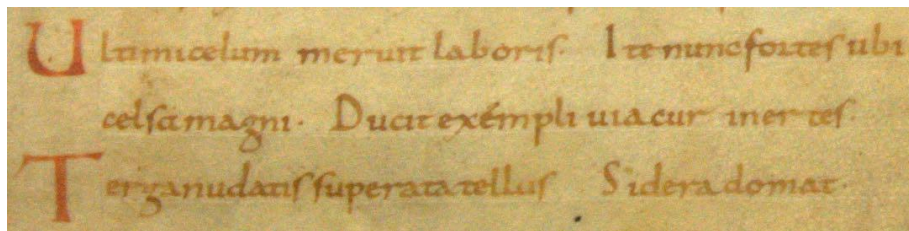 Ultimi celum meruit laboris. Ite nunc fortes ubi
celsa magni. Ducit exempli uia cur inertes.
Terga nudatis superata tellus Sidera domat.